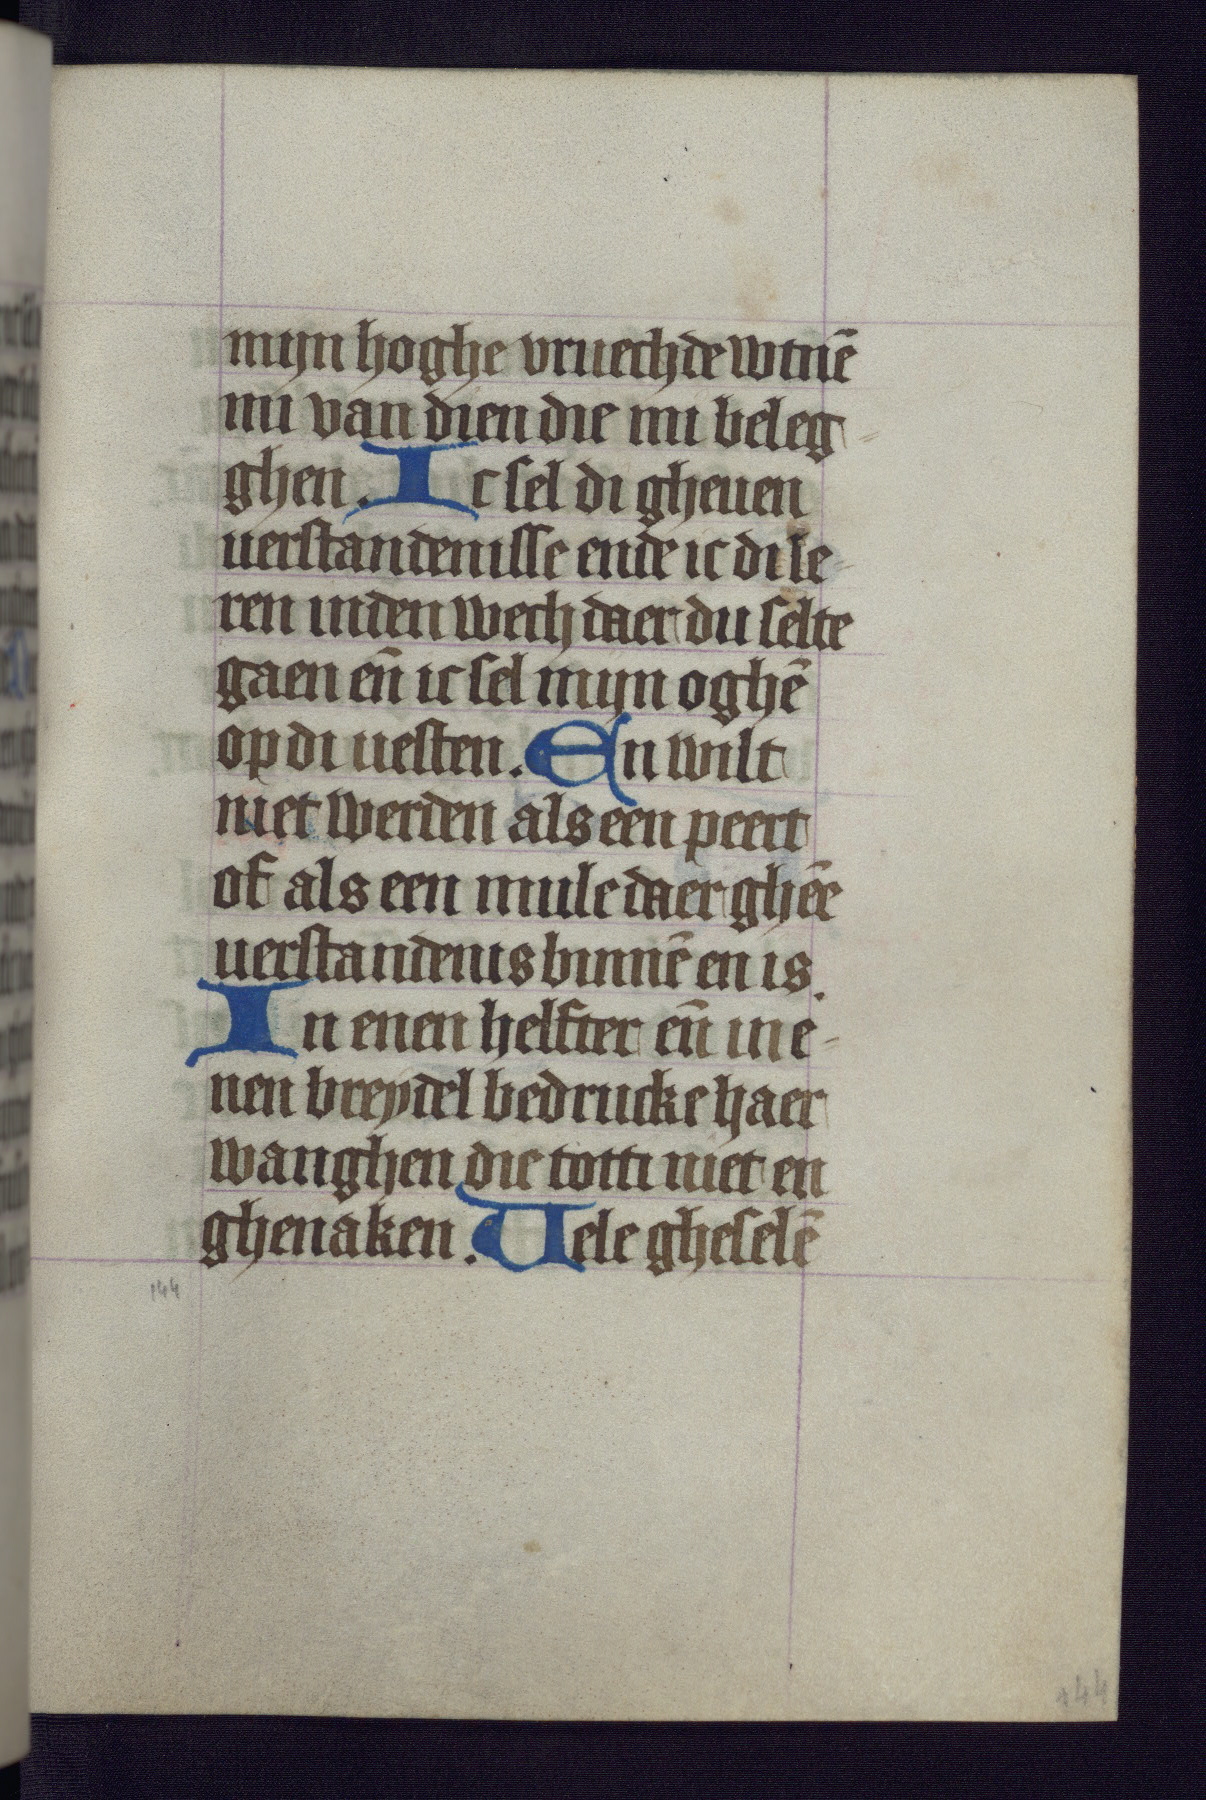 mijn hoghe vruechde wtnē
mi van dien die mi beleg
ghen. Ic sel di gheuen
uerstandenisse ende ic di le
ren inden wech daer du selte
gaen eñ ic sel mijn oghē
op di uesten. En wilt
niet werden als een peert
of als een mule daer ghēe
uerstandenis binnē en is.
In enen helfter eñ in e
nen breydel bedrucke haer
wanghen die totti niet en
ghenaken. Uele gheselē
144
144